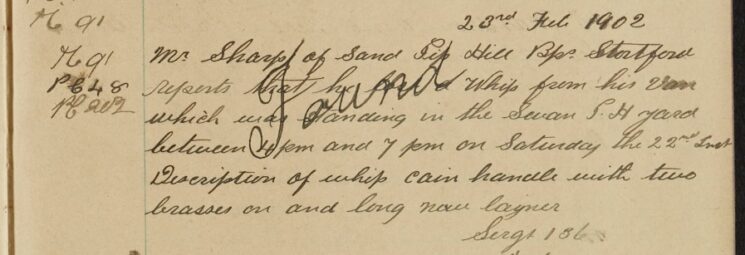 M 91
23rd Feb 1902
M 91 Mr Sharp of Sand Pip Hill Bps Stortford
P648 reports that he a Whip from his Van
P202 which was standing in the Swan P.H yard
found
between 4 pm and 7 pm on Saturday the 22nd Inst
Discription of whip cain handle with two
brasses on and long new layner
Sergt 186